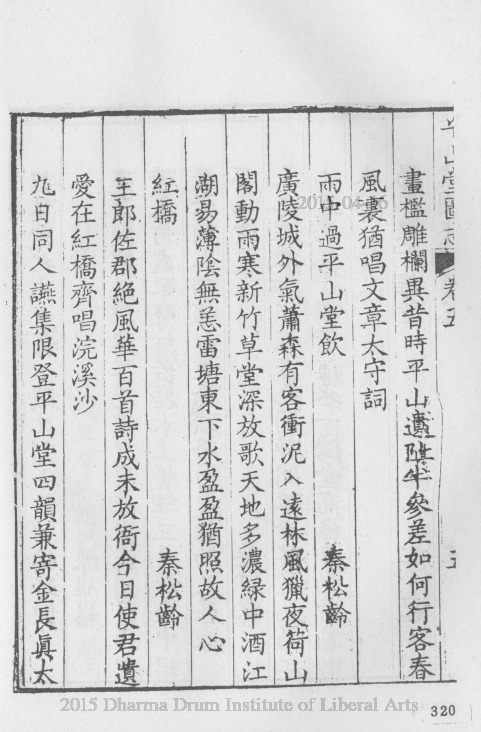 平山堂圖志 卷五
畫檻雕欄異昔時平山遺陁半參差如何行客春
風裏猶唱文章太守詞
雨中過平山堂飲 秦松齡
廣陵城外氣蕭森有客衝泥入遠林風獵夜荷山
閣動雨寒新竹草堂深放歌天地多濃綠中酒江
湖易薄陰無恙雷塘東下水盈盈猶照故人心
紅橋 秦松齡
王郎佐郡絕風華百首詩成未放衙今日使君遺
愛在紅橋齊唱浣溪沙
九日同人讌集限登平山堂四韻兼寄金長眞太
2015 Dharma Drum Institute of Liberal Arts
320